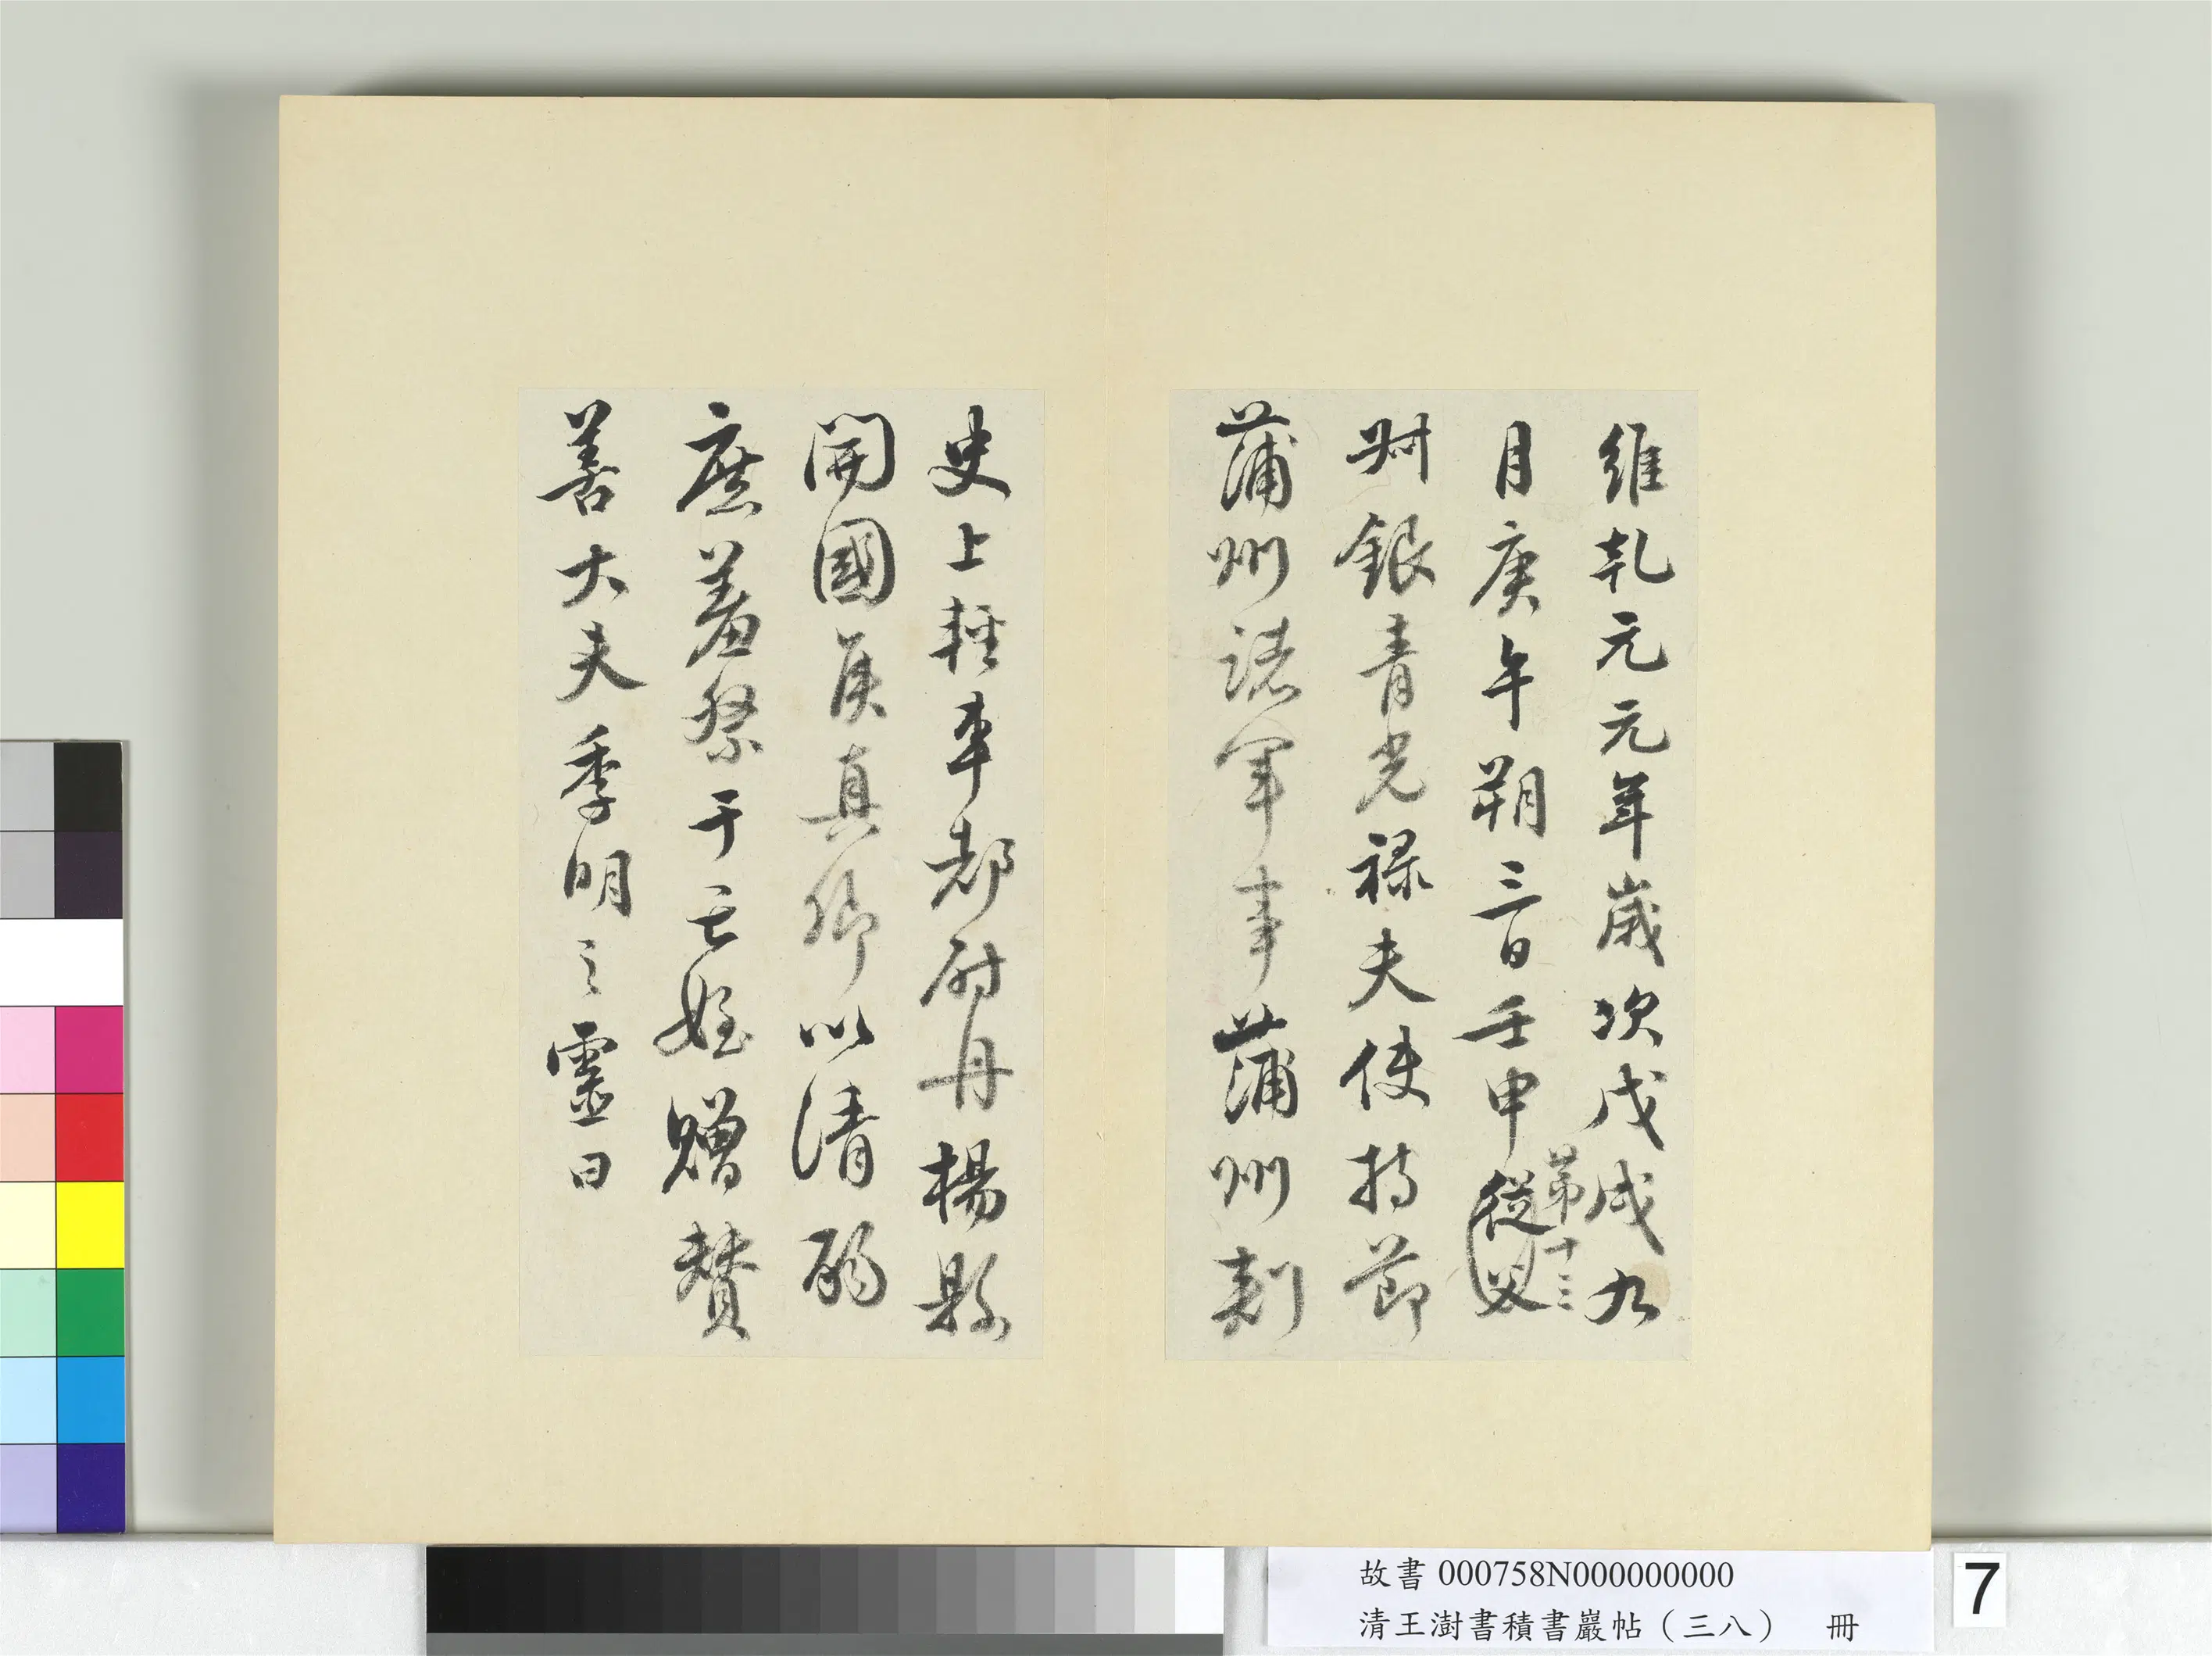 維乾元元年歲次戊戌九
月庚午朔三日壬申從父
第十三
州銀青光祿夫使持節
蒲州諸軍事蒲州刺
史上輕車都尉丹楊縣
開國侯真卿以清酌
庶羞祭于亡姪贈贊
善大夫季明之靈曰
故書 000758N000000000
清王澍書積書巖帖(三八) 冊
7